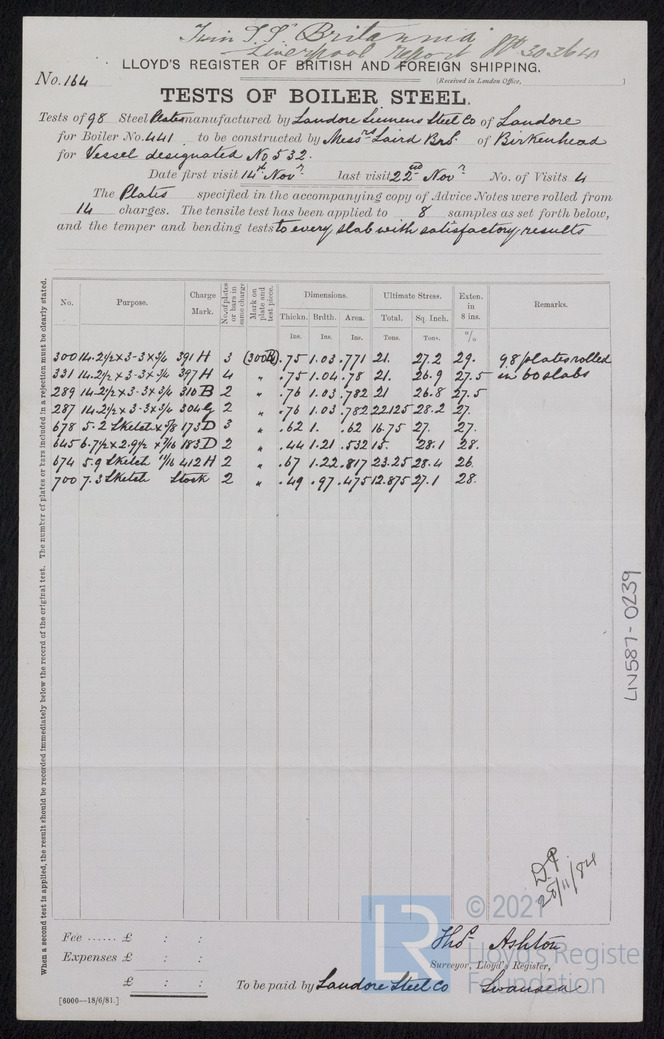 Twin S.S. Britannia
Liverpool report No 30364
LLOYD'S REGISTER OF BRITISH AND FOREIGN SHIPPING.
No. 164
(Received in London Office, )
TESTS OF BOILER STEEL.
Tests of 98 Steel Plates manufactured by Landore Siemens Steel Co of Landore
for Boiler No. 441 to be constructed by Messrs Laird Bros. of Birkenhead
for Vessel designated No 532.
Date first visit 14th Novr last visit 22nd Novr No. of Visits 4
The Plates specified in the accompanying copy of Advice Notes were rolled from
14 charges. The tensile test has been applied to 8 samples as set forth below,
and the temper and bending tests to every slab with satisfactory results
No. Purpose. Charge Mark. No. of plates or bars in same charge Mark on plate and test piece. Dimensions. Ultimate Stress. Exten. in 8 ins. Remarks.
Thickn. Brdth. Area. Total. Sq. Inch.
Ins. Ins. Ins. Tons. Tons. %
300 14.2½ x 3-3 x ¾ 391 H 3 .75 1.03 .771 21. 27.2 29. 98 plates rolled
331 14.2½ x 3-3 x ¾ 397 H 4 " .75 1.04 .78 21. 26.9 27.5 in 60 slabs
289 14.2½ x 3-3 x ¾ 310 B 2 " .76 1.03 .782 21 26.8 27.5
287 14.2½ x 3-3 x ¾ 304 G 2 " .76 1.03 .782 22.125 28.2 27.
678 5.2 Sketch x 5/8 173 D 3 " .62 1. .62 16.75 27. 27.
645 6.7½ x 2.9½ x 7/16 183 D 2 " .44 1.21 .532 15. 28.1 28.
674 5.9 Sketch 11/16 412 H 2 " .67 1.22 .817 23.25 28.4 26.
700 7.3 Sketch Stock 2 " .49 .97 .475 12.875 27.1 28.
When a second test is applied, the result should be recorded immediately below the record of the original test. The number of plates or bars included in a rejection must be clearly stated.
LIN587-0239
D.P.
25/11/84
Fee ...... £ : :
Expenses £ : :
£ : :
[6000—18/6/81.]
Thos. Ashton
Surveyor, Lloyd's Register,
To be paid by Landore Steel Co Swansea
LR
© 2021
Lloyd's Register
Foundation